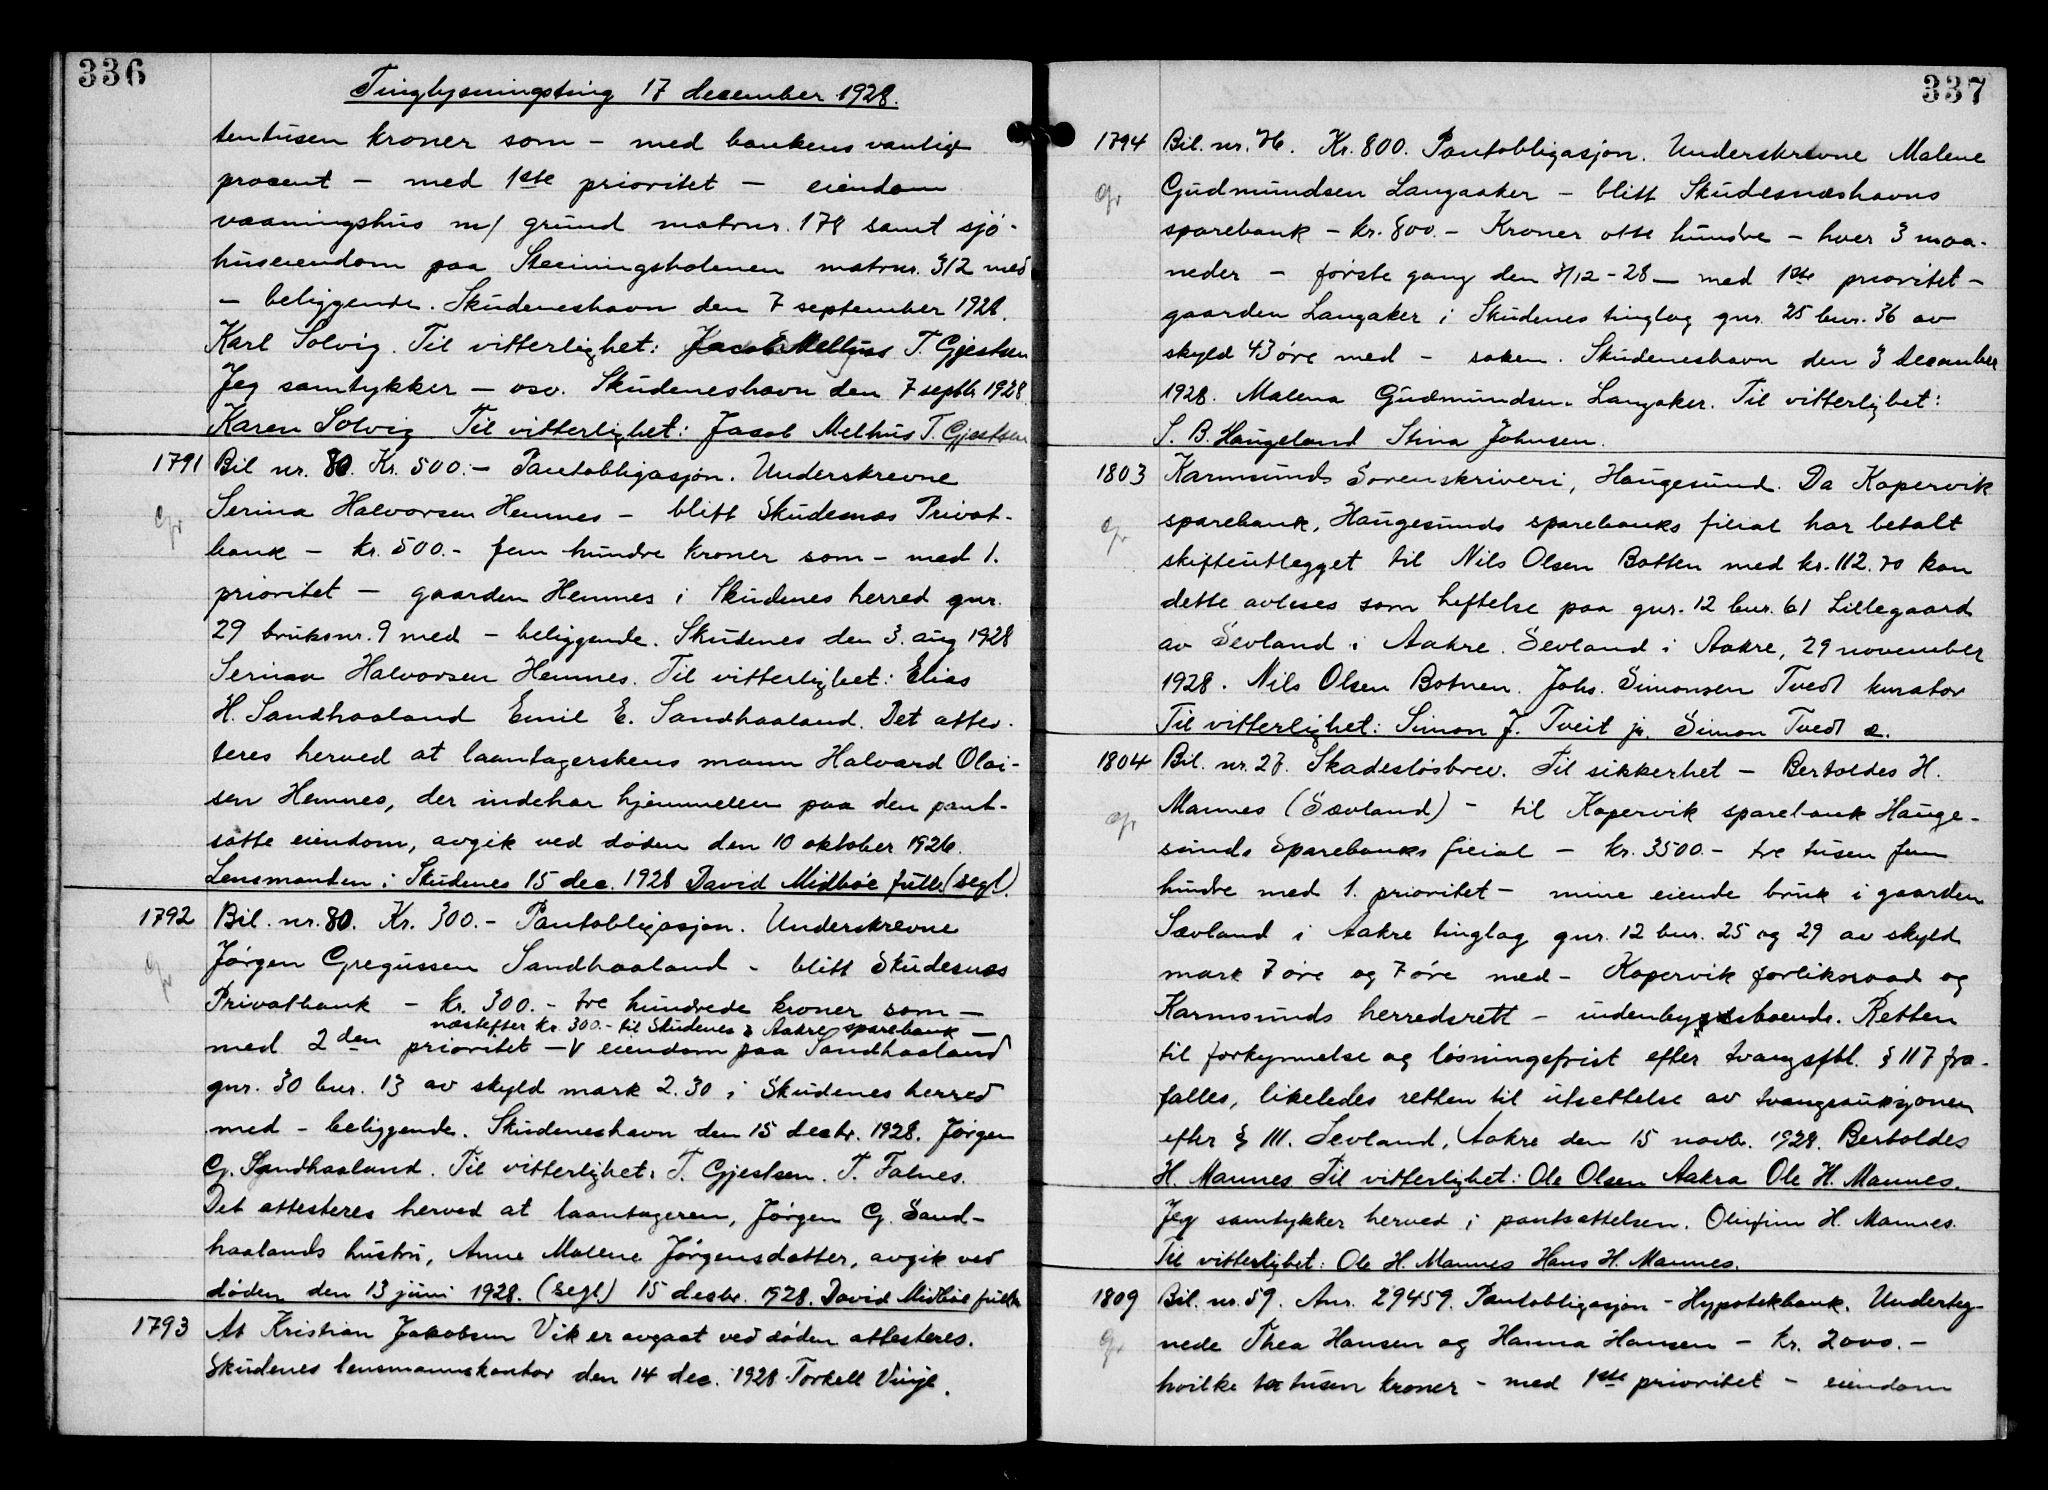 336
Tinglysningsting 17 december 1928.
tentusen kroner som - med bankens vanlige
procent - med 1ste prioritet - eiendom
vaaningshus m/ grund matrnr. 178 samt sjö-
huseiendom paa Steiningsholmen matrnr. 312 med
- beliggende. Skudeneshavn den 7 september 1928.
Karl Solvig. Til vitterlighet: Jacob Melhus T. Gjestsen
Jeg samtykker - osv. Skudeneshavn den 7 septbr 1928.
Karen Solvig Til vitterlighet: Jacob Melhus T. Gjestsen
1791 Bil nr. 80. Kr. 500.- Pantobligasjon. Underskrevne
Serina Halvorsen Hemnes - blitt Skudesnæs Privat-
bank - kr. 500.- fem hundre kroner som - med 1.
prioritet - gaarden Hemnes i Skudenes herred gnr.
29 bruksnr. 9 med - beliggende. Skudenes den 3. aug 1928
Serina Halvorsen Hemnes. Til vitterlighet: Elias
H. Sandhaaland Emil E. Sandhaaland. Det attes-
teres herved at laantagerskens mann Halvard Olai-
sen Hemnes, der indehar hjemmelen paa den pant-
satte eiendom, avgik ved døden den 10 oktober 1926.
Lensmanden i Skudenes 15 dec. 1928 David Midbøe fullm. (segl).
1792 Bil. nr. 80. Kr. 300.- Pantobligasjon. Underskrevne
Jørgen Gregussen Sandhaaland - blitt Skudesnæs
Privatbank - kr. 300.- tre hundrede kroner som -
næstefter kr. 300.- til Skudenes & Aakre sparebank -
med 2den prioritet - V eiendom paa Sandhaaland
gnr. 30 bnr. 13 av skyld mark 2.30 i Skudenes herred
med - beliggende. Skudeneshavn den 15 decbr. 1928. Jørgen
G. Sandhaaland. Til vitterlighet: T. Gjestsen. T. Falnes.
Det attesteres herved at laantageren, Jørgen G. Sand-
haalands hustru, Anne Malene Jørgensdatter, avgik ved
døden den 13 juni 1928. (segl) 15 decbr. 1928. David Midbøe fullm
1793 At Kristian Jakobsen Vik er avgaat ved døden attesteres.
Skudenes lensmannskontor den 14 dec. 1928 Torkell Vinje.
337
1794 Bil. nr. 76. Kr. 800. Pantobligasjon. Underskrevne Malene
Gudmundsen Langaaker - blitt Skudesnæshavns
sparebank - kr. 800.- Kroner otte hundre - hver 3 maa-
neder - første gang den 3/12-28 - med 1ste prioritet -
gaarden Langaker i Skudenes tinglag gnr. 25 bnr. 36 av
skyld 43 øre med - saken. Skudeneshavn den 3 december
1928. Malena Gudmundsen Langaker. Til vitterlighet:
S. B. Haugeland Stina Johnsen.
1803 Karmsunds Sorenskriveri, Haugesund. Da Kopervik
sparebank, Haugesunds sparebanks filial har betalt
skifteutlegget til Nils Olsen Botten med kr. 112.70 kan
dette avleses som heftelse paa gnr. 12 bnr. 61 Lillegaard
av Sevland i Aakre. Sevland i Aakre, 29 november
1928. Nils Olsen Botnen. Johs. Simonsen Tvedt kurator
Til vitterlighet: Simon J. Tveit jr. Simon Tvedt s.
1804 Bil. nr. 27. Skadesløsbrev. Til sikkerhet - Bertoldes H.
Mannes (Sævland) - til Kopervik sparebank Hauge-
sunds Sparebanks filial - kr. 3500.- tre tusen fem
hundre med 1. prioritet - mine eiende bruk i gaarden
Sævland i Aakre tinglag gnr. 12 bnr. 25 og 29 av skyld
mark 7 øre og 7 øre med - Kopervik forliksraad og
Karmsunds herredsrett - indenbygdsboende. Retten
til forkynnelse og løsningsfrist efter tvangsfbl. § 117 fra-
falles, likeledes retten til utsettelse av tvangsauksjonen
efter § 111. Sevland, Aakre den 15 novbr. 1928. Bertoldes
H. Mannes Til vitterlighet: Ole Olsen Aakra Ole H. Mannes.
Jeg samtykker herved i pantsettelsen. Olufine H. Mannes.
Til vitterlighet: Ole H. Mannes Hans H. Mannes.
1809 Bil. nr. 59. Anr. 29459. Pantobligasjon - Hypotekbank. Underteg-
nede Thea Hansen og Hanna Hansen - kr. 2000.-
hvilke to tusen kroner - med 1ste prioritet - eiendom